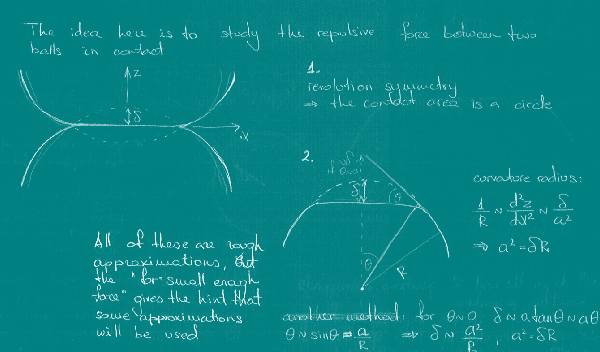 The idea here is to study the repulsive force between two
balls in contact
z
δ
x
1.
revolution symmetry
⇒ the contact area is a circle
2.
δ
θ
θ
R
curvature radius:
1/R ~ d²z/dx² ~ δ/a²
⇒ a² = δR
All of these are rough
approximations, but
the "for small enough
force" gives the hint that
some approximations
will be used
another method: for θ~0 δ ~ a tanθ ~ aθ
θ ~ sinθ = a/R ⇒ δ ~ a²/R, a² = δR